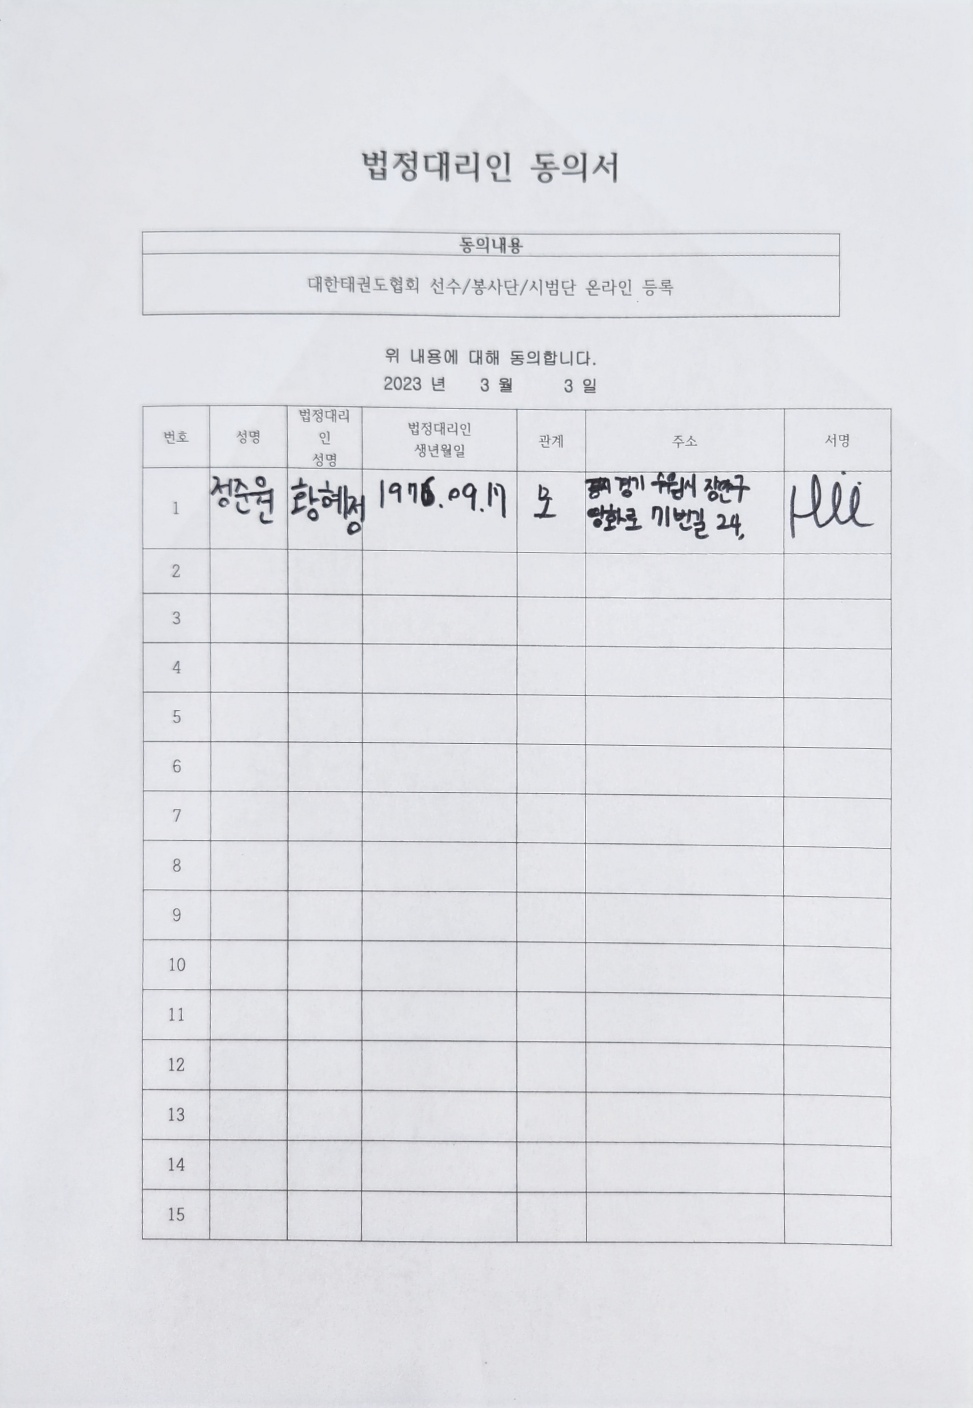 법정대리인 동의서
동의내용
대한태권도협회 선수/봉사단/시범단 온라인 등록
위 내용에 대해 동의합니다.
2023 년 3 월 3 일
번호 성명 법정대리인 성명 법정대리인 생년월일 관계 주소 서명
1 정준원 황혜정 1976.09.17 모 경기 수원시 장안구
71번길 24,
2
3
4
5
6
7
8
9
10
11
12
13
14
15